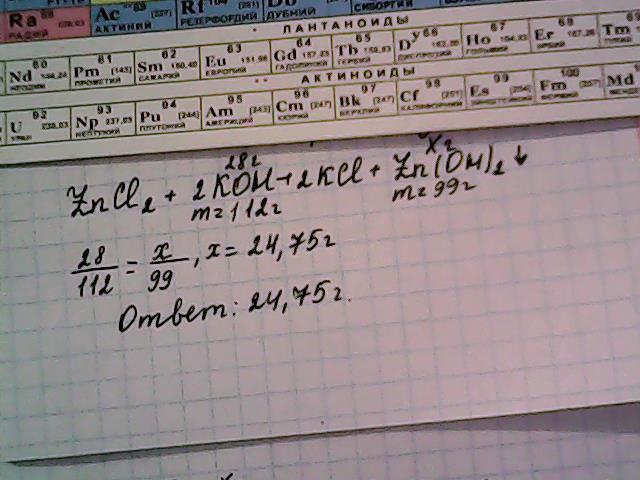 Ra
РАДИЙ
Ac [227]
АКТИНИЙ
Rf 104 [261]
РЕЗЕРФОРДИЙ
ДУБНИЙ
СИБОРГИЙ
* ЛАНТАНОИДЫ
60 61 62 63 64 65 66 67 68 69
Nd 144,24 Pm [145] Sm 150,40 Eu 151,96 Gd 157,25 Tb 158,93 Dy Ho 164,93 Er 167,26 Tm
НЕОДИМ ПРОМЕТИЙ САМАРИЙ ЕВРОПИЙ ГАДОЛИНИЙ ТЕРБИЙ ДИСПРОЗИЙ ГОЛЬМИЙ ЭРБИЙ
** АКТИНОИДЫ
92 93 94 95 96 97 98 99 100
U 238,03 Np 237,05 Pu [244] Am [243] Cm [247] Bk [247] Cf [251] Es [254] Fm [257] Md
УРАН НЕПТУНИЙ ПЛУТОНИЙ АМЕРИЦИЙ КЮРИЙ БЕРКЛИЙ КАЛИФОРНИЙ ЭЙНШТЕЙНИЙ ФЕРМИЙ
28г Xг
ZnCl₂ + 2KOH → 2KCl + Zn(OH)₂↓
m=112г m=99г
28/112 = x/99, x = 24,75г
Ответ: 24,75г.